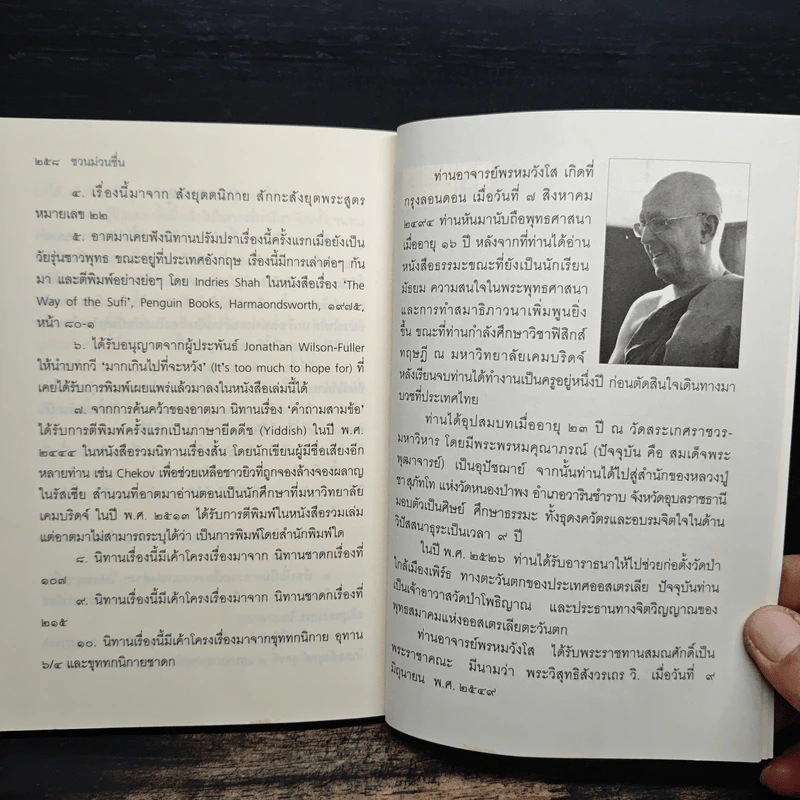 ๒๕๘ ชวนม่วนชื่น
๔. เรื่องนี้มาจาก สังยุตตนิกาย สักกะสังยุตพระสูตร
หมายเลข ๒๒
๕. อาตมาเคยฟังนิทานปรัมปราเรื่องนี้ครั้งแรกเมื่อยังเป็น
วัยรุ่นชาวพุทธ ขณะอยู่ที่ประเทศอังกฤษ เรื่องนี้มีการเล่าต่อๆ กัน
มา และตีพิมพ์อย่างย่อๆ โดย Indries Shah ในหนังสือเรื่อง ‘The
Way of the Sufi’, Penguin Books, Harmaondsworth, ๑๙๗๕,
หน้า ๘๐-๑
๖. ได้รับอนุญาตจากผู้ประพันธ์ Jonathan Wilson-Fuller
ให้นำบทกวี ‘มากเกินไปที่จะหวัง’ (It’s too much to hope for) ที่
เคยได้รับการพิมพ์เผยแพร่แล้วมาลงในหนังสือเล่มนี้ได้
๗. จากการค้นคว้าของอาตมา นิทานเรื่อง ‘คำถามสามข้อ’
ได้รับการตีพิมพ์ครั้งแรกเป็นภาษายีดดีช (Yiddish) ในปี พ.ศ.
๒๔๔๔ ในหนังสือรวมนิทานเรื่องสั้น โดยนักเขียนผู้มีชื่อเสียงอีก
หลายท่าน เช่น Chekov เพื่อช่วยเหลือชาวยิวที่ถูกจองล้างจองผลาญ
ในรัสเซีย สำนวนที่อาตมาอ่านตอนเป็นนักศึกษาที่มหาวิทยาลัย
เคมบริดจ์ ในปี พ.ศ. ๒๕๑๓ ได้รับการตีพิมพ์ในหนังสือรวมเล่ม
แต่อาตมาไม่สามารถระบุได้ว่า เป็นการพิมพ์โดยสำนักพิมพ์ใด
๘. นิทานเรื่องนี้มีเค้าโครงเรื่องมาจาก นิทานชาดกเรื่องที่
๑๐๗
๙. นิทานเรื่องนี้มีเค้าโครงเรื่องมาจาก นิทานชาดกเรื่องที่
๒๑๕
๑๐. นิทานเรื่องนี้มีเค้าโครงเรื่องมาจากขุททกนิกาย อุทาน
๖/๔ และขุททกนิกายชาดก
ท่านอาจารย์พรหมวังโส เกิดที่
กรุงลอนดอน เมื่อวันที่ ๗ สิงหาคม
๒๔๙๔ ท่านหันมานับถือพุทธศาสนา
เมื่ออายุ ๑๖ ปี หลังจากที่ท่านได้อ่าน
หนังสือธรรมะขณะที่ยังเป็นนักเรียน
มัธยม ความสนใจในพระพุทธศาสนา
และการทำสมาธิภาวนาเพิ่มพูนยิ่ง
ขึ้น ขณะที่ท่านกำลังศึกษาวิชาฟิสิกส์
ทฤษฎี ณ มหาวิทยาลัยเคมบริดจ์
หลังเรียนจบท่านได้ทำงานเป็นครูอยู่หนึ่งปี ก่อนตัดสินใจเดินทางมา
บวชที่ประเทศไทย
ท่านได้อุปสมบทเมื่ออายุ ๒๓ ปี ณ วัดสระเกศราชวร-
มหาวิหาร โดยมีพระพรหมคุณาภรณ์ (ปัจจุบัน คือ สมเด็จพระ
พุฒาจารย์) เป็นอุปัชฌาย์ จากนั้นท่านได้ไปสู่สำนักของหลวงปู่
ชา สุภัทโท แห่งวัดหนองป่าพง อำเภอวารินชำราบ จังหวัดอุบลราชธานี
มอบตัวเป็นศิษย์ ศึกษาธรรมะ ทั้งธุดงควัตรและอบรมจิตใจในด้าน
วิปัสสนาธุระเป็นเวลา ๙ ปี
ในปี พ.ศ. ๒๕๒๖ ท่านได้รับอาราธนาให้ไปช่วยก่อตั้งวัดป่า
ใกล้เมืองเพิร์ธ ทางตะวันตกของประเทศออสเตรเลีย ปัจจุบันท่าน
เป็นเจ้าอาวาสวัดป่าโพธิญาณ และประธานทางจิตวิญญาณของ
พุทธสมาคมแห่งออสเตรเลียตะวันตก
ท่านอาจารย์พรหมวังโส ได้รับพระราชทานสมณศักดิ์เป็น
พระราชาคณะ มีนามว่า พระวิสุทธิสังวรเถร วิ. เมื่อวันที่ ๙
มิถุนายน พ.ศ. ๒๕๔๙